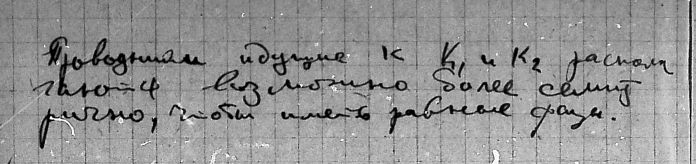 Проводники идущие к K₁ и K₂ распола
гаются возможно более семит
рично, чтобы иметь равные фазы.